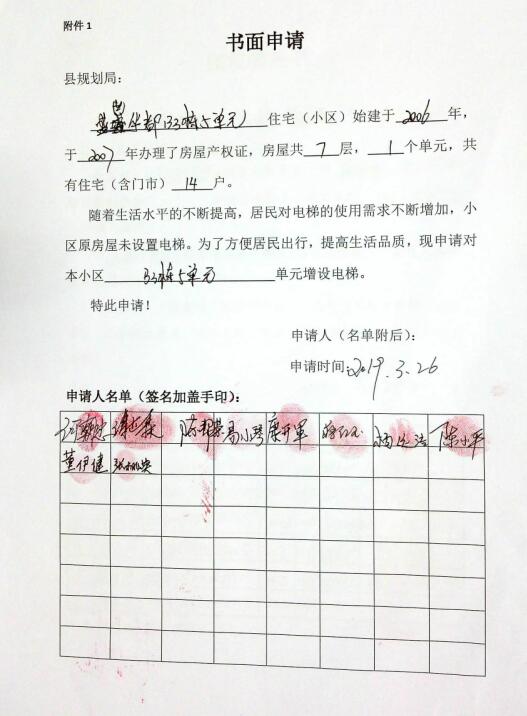 附件1
书面申请
县规划局:
华都(33栋5单元)住宅(小区)始建于2006年,
于2007年办理了房屋产权证,房屋共7层,1个单元,共
有住宅(含门市)14户。
随着生活水平的不断提高,居民对电梯的使用需求不断增加,小
区原房屋未设置电梯。为了方便居民出行,提高生活品质,现申请对
本小区33栋5单元单元增设电梯。
特此申请!
申请人(名单附后):
申请时间:2019.3.26
申请人名单(签名加盖手印):
易小琴 康开军 陈小平
董伊健